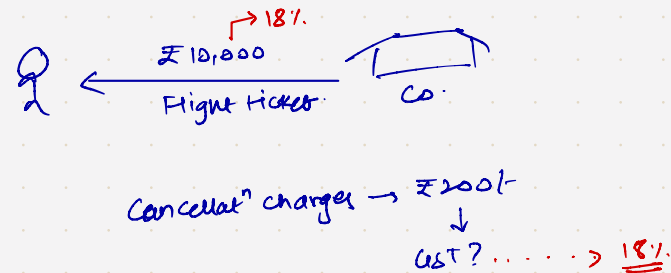 18%.
₹ 10,000
Flight ticket.
Co.
Cancellatⁿ charges → ₹200/-
GST? ...... → 18%.